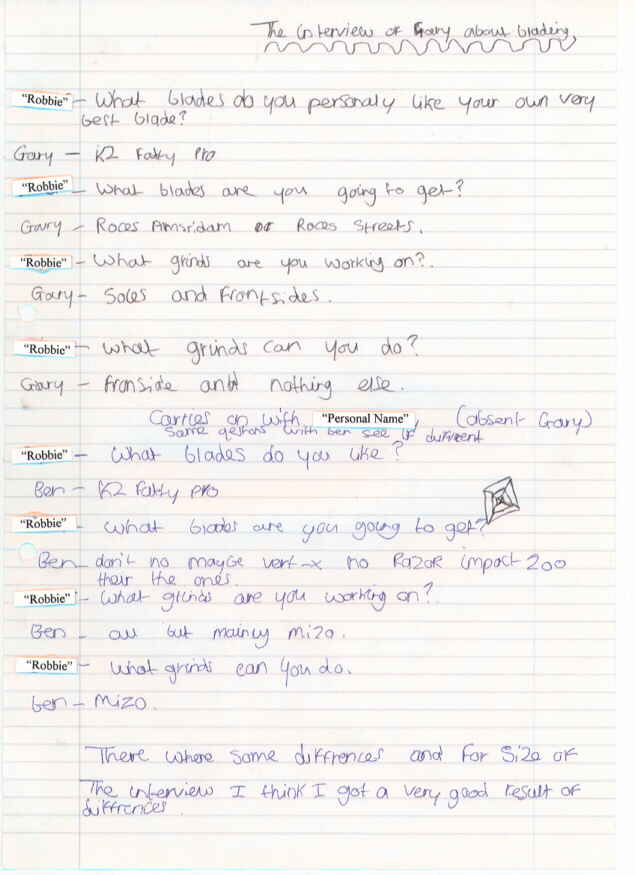 The interview of Gary about blading,
"Robbie" – What blades do you personaly like your own very
best blade?
Gary – K2 Fatty Pro
"Robbie" – What blades are you going to get?
Gary – Roces Amsridam or Roces Streets.
"Robbie" – What grinds are you working on?.
Gary – Soles and Frontsides.
"Robbie" – What grinds can you do?
Gary – fronside and nothing else.
Carries on with "Personal Name", (absent Gary)
Same qestions with ben see if different
"Robbie" – What blades do you like?
Ben – K2 Fatty pro
"Robbie" – What blades are you going to get?
Ben – don't no maybe vert-x no RAZOR impact 200
their the ones.
"Robbie" – What grinds are you working on?
Ben – all but mainly mizo.
"Robbie" – What grinds can you do.
Ben – MIZO.
There where some diffrences and for Size of
The interview I think I got a very good result of
diffrences.